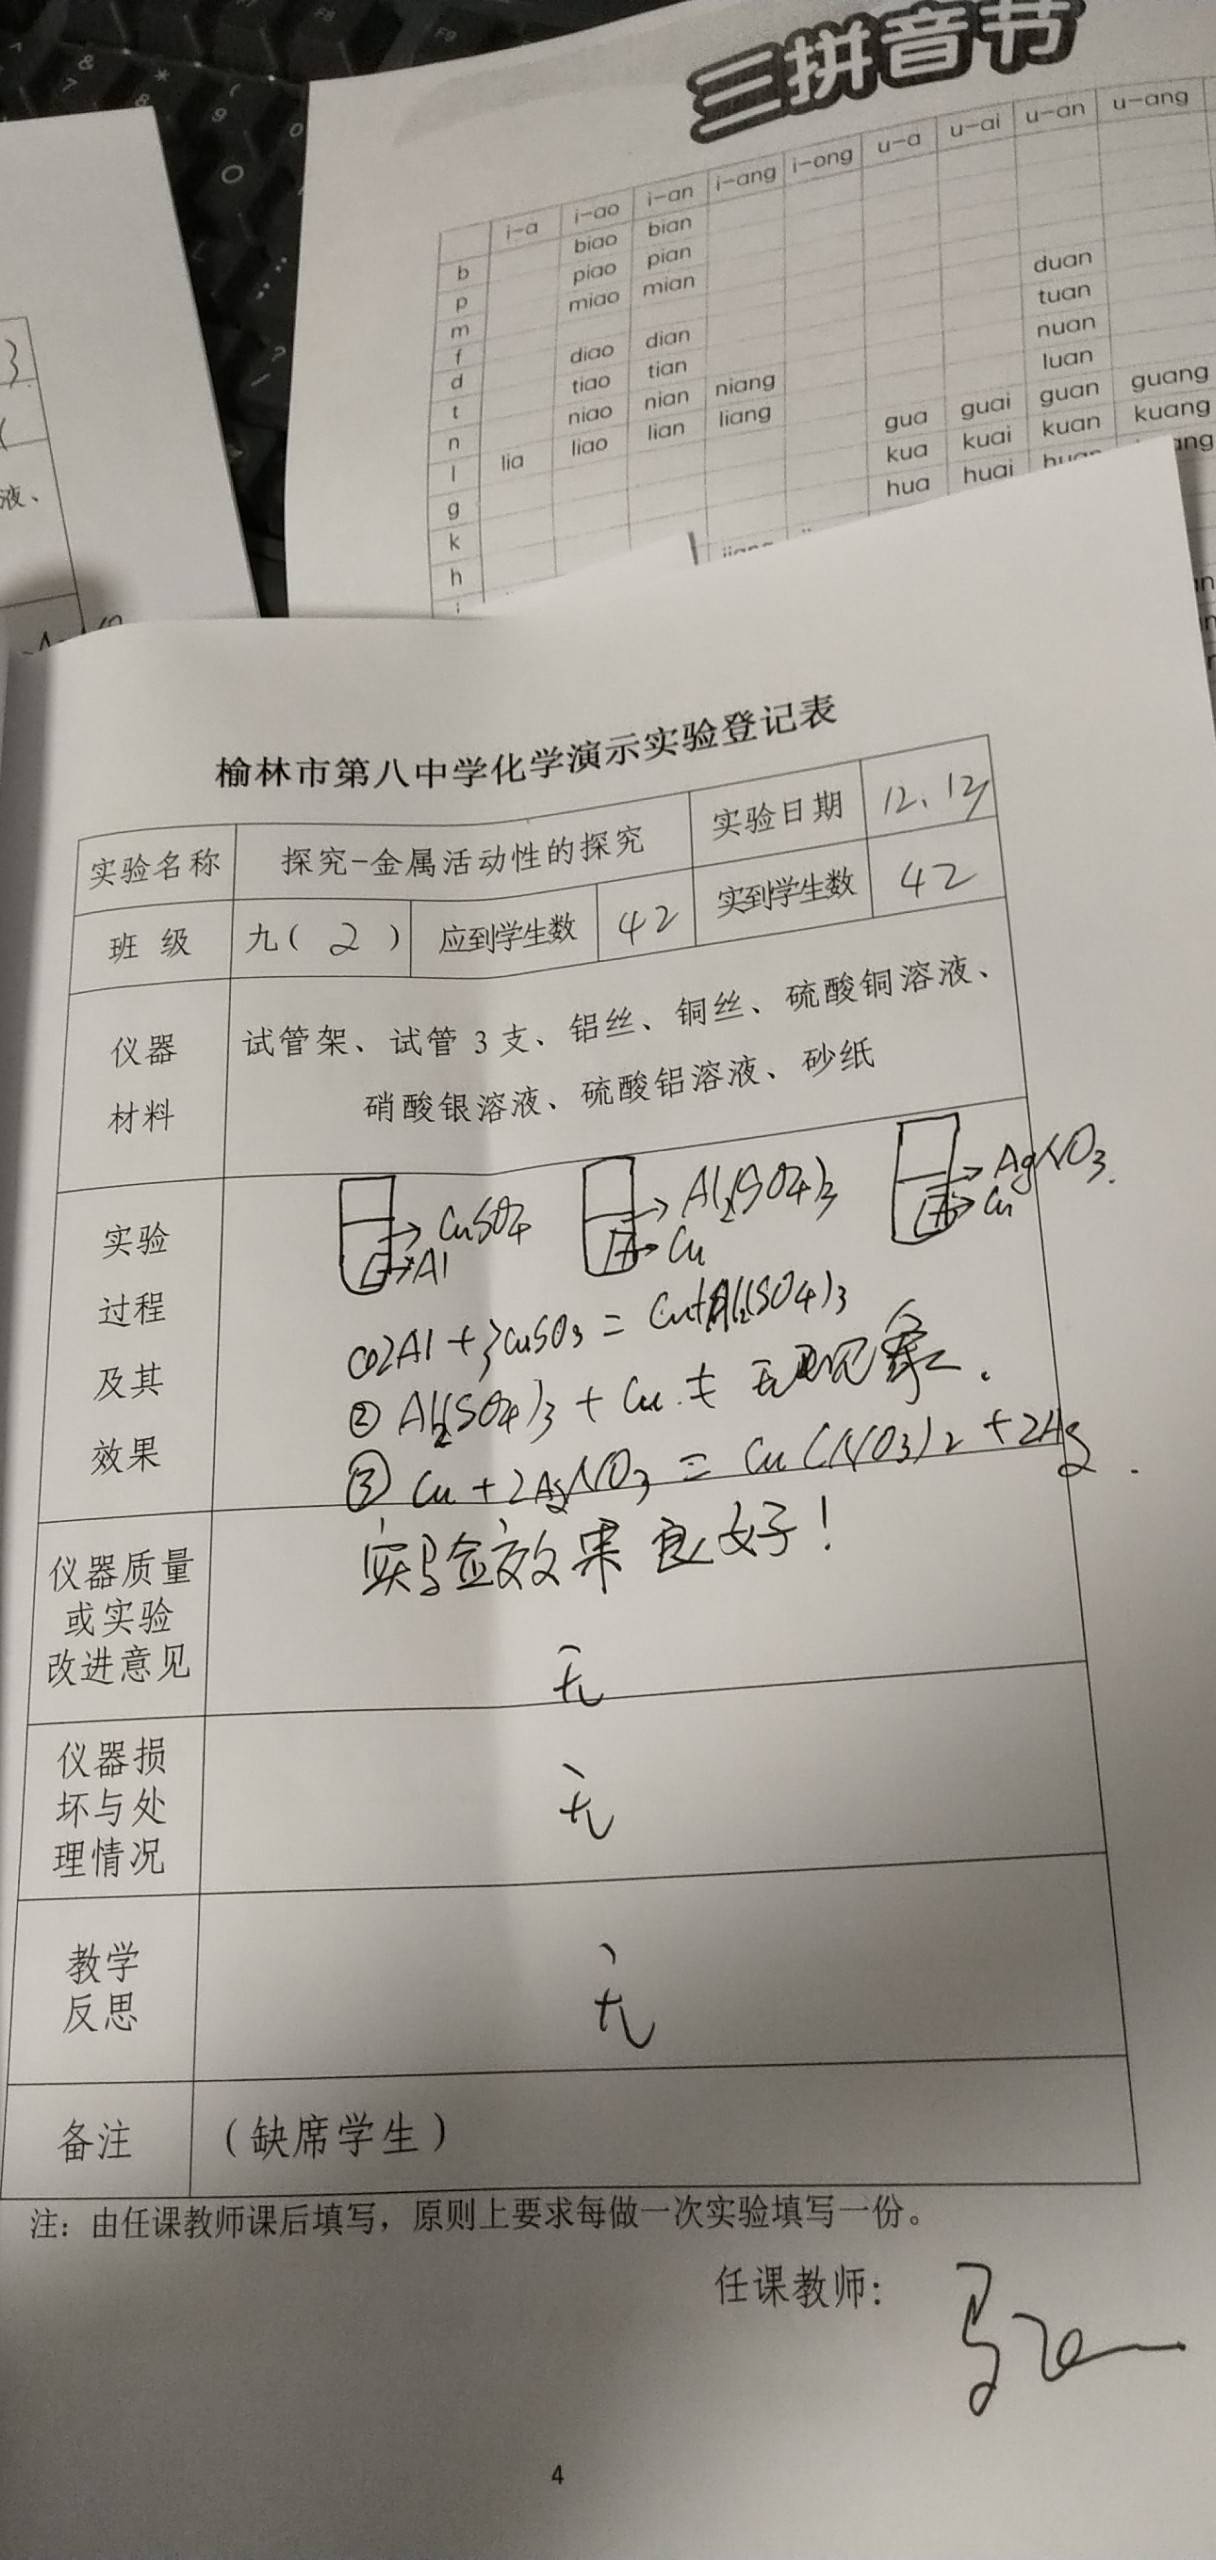 三拼音节
i-a i-ao i-an i-ang i-ong u-a u-ai u-an u-ang
b biao bian
p piao pian
m miao mian
f
d diao dian duan
t tiao tian tuan
n niao nian niang nuan
l lia liao lian liang luan
g gua guai guan guang
k kua kuai kuan kuang
h hua huai
液、
榆林市第八中学化学演示实验登记表
实验名称 探究-金属活动性的探究 实验日期 12、13
班 级 九( 2 ) 应到学生数 42 实到学生数 42
仪器材料 试管架、试管3支、铝丝、铜丝、硫酸铜溶液、
硝酸银溶液、硫酸铝溶液、砂纸
实验过程及其效果
CuSO4 Al2(SO4)3 AgNO3.
Al Cu Cu
2Al+3CuSO3=Cu+Al2(SO4)3
② Al2(SO4)3+Cu 无现象.
③ Cu+2AgNO3=Cu(NO3)2+2Ag.
实验效果良好!
仪器质量或实验改进意见 无
仪器损坏与处理情况 无
教学反思 无
备注 (缺席学生)
注:由任课教师课后填写,原则上要求每做一次实验填写一份。
任课教师:
4